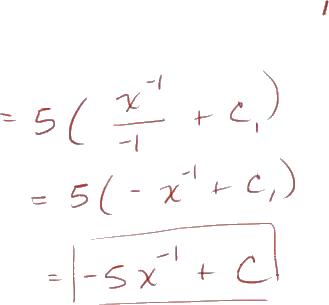 = 5 ( x^{-1} / -1 + C_1 )
= 5 ( - x^{-1} + C_1 )
= -5 x^{-1} + C